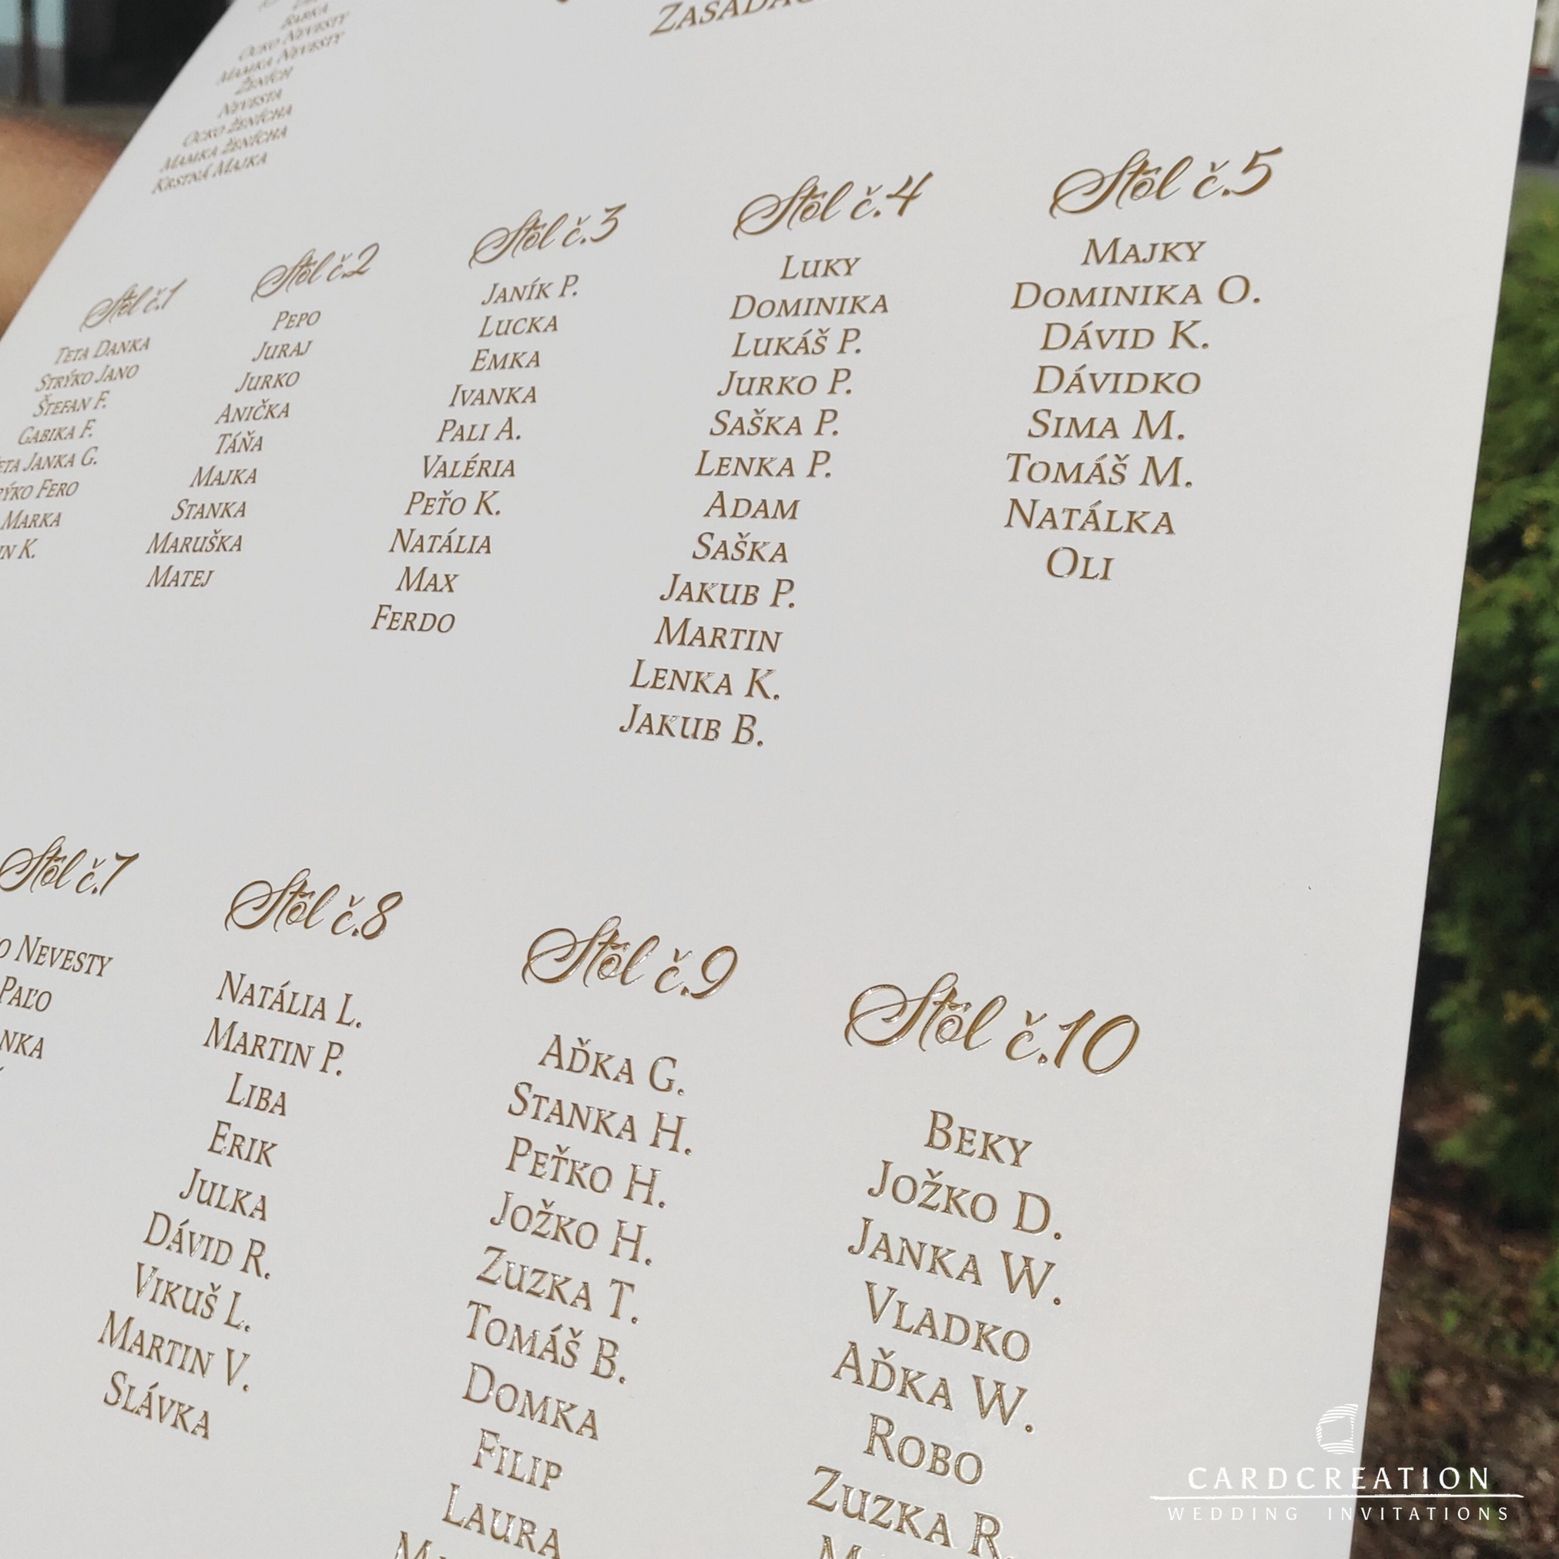 Babka
Ocko Nevesty
Mamka Nevesty
Ženích
Nevesta
Ocko ženícha
Mamka ženícha
Krstná Majka
Stôl č.1
Teta Danka
Strýko Jano
Štefan F.
Gabika F.
Janka G.
Fero
Marka
K.
Stôl č.2
Pepo
Juraj
Jurko
Anička
Táňa
Majka
Stanka
Maruška
Matej
Stôl č.3
Janík P.
Lucka
Emka
Ivanka
Pali A.
Valéria
Peťo K.
Natália
Max
Ferdo
Stôl č.4
Luky
Dominika
Lukáš P.
Jurko P.
Saška P.
Lenka P.
Adam
Saška
Jakub P.
Martin
Lenka K.
Jakub B.
Stôl č.5
Majky
Dominika O.
Dávid K.
Dávidko
Sima M.
Tomáš M.
Natálka
Oli
Stôl č.7
Nevesty
Paľo
Stôl č.8
Natália L.
Martin P.
Liba
Erik
Julka
Dávid R.
Vikuš L.
Martin V.
Slávka
Stôl č.9
Aďka G.
Stanka H.
Peťko H.
Jožko H.
Zuzka T.
Tomáš B.
Domka
Filip
Laura
Stôl č.10
Beky
Jožko D.
Janka W.
Vladko
Aďka W.
Robo
Zuzka R.
CARDCREATION
WEDDING INVITATIONS